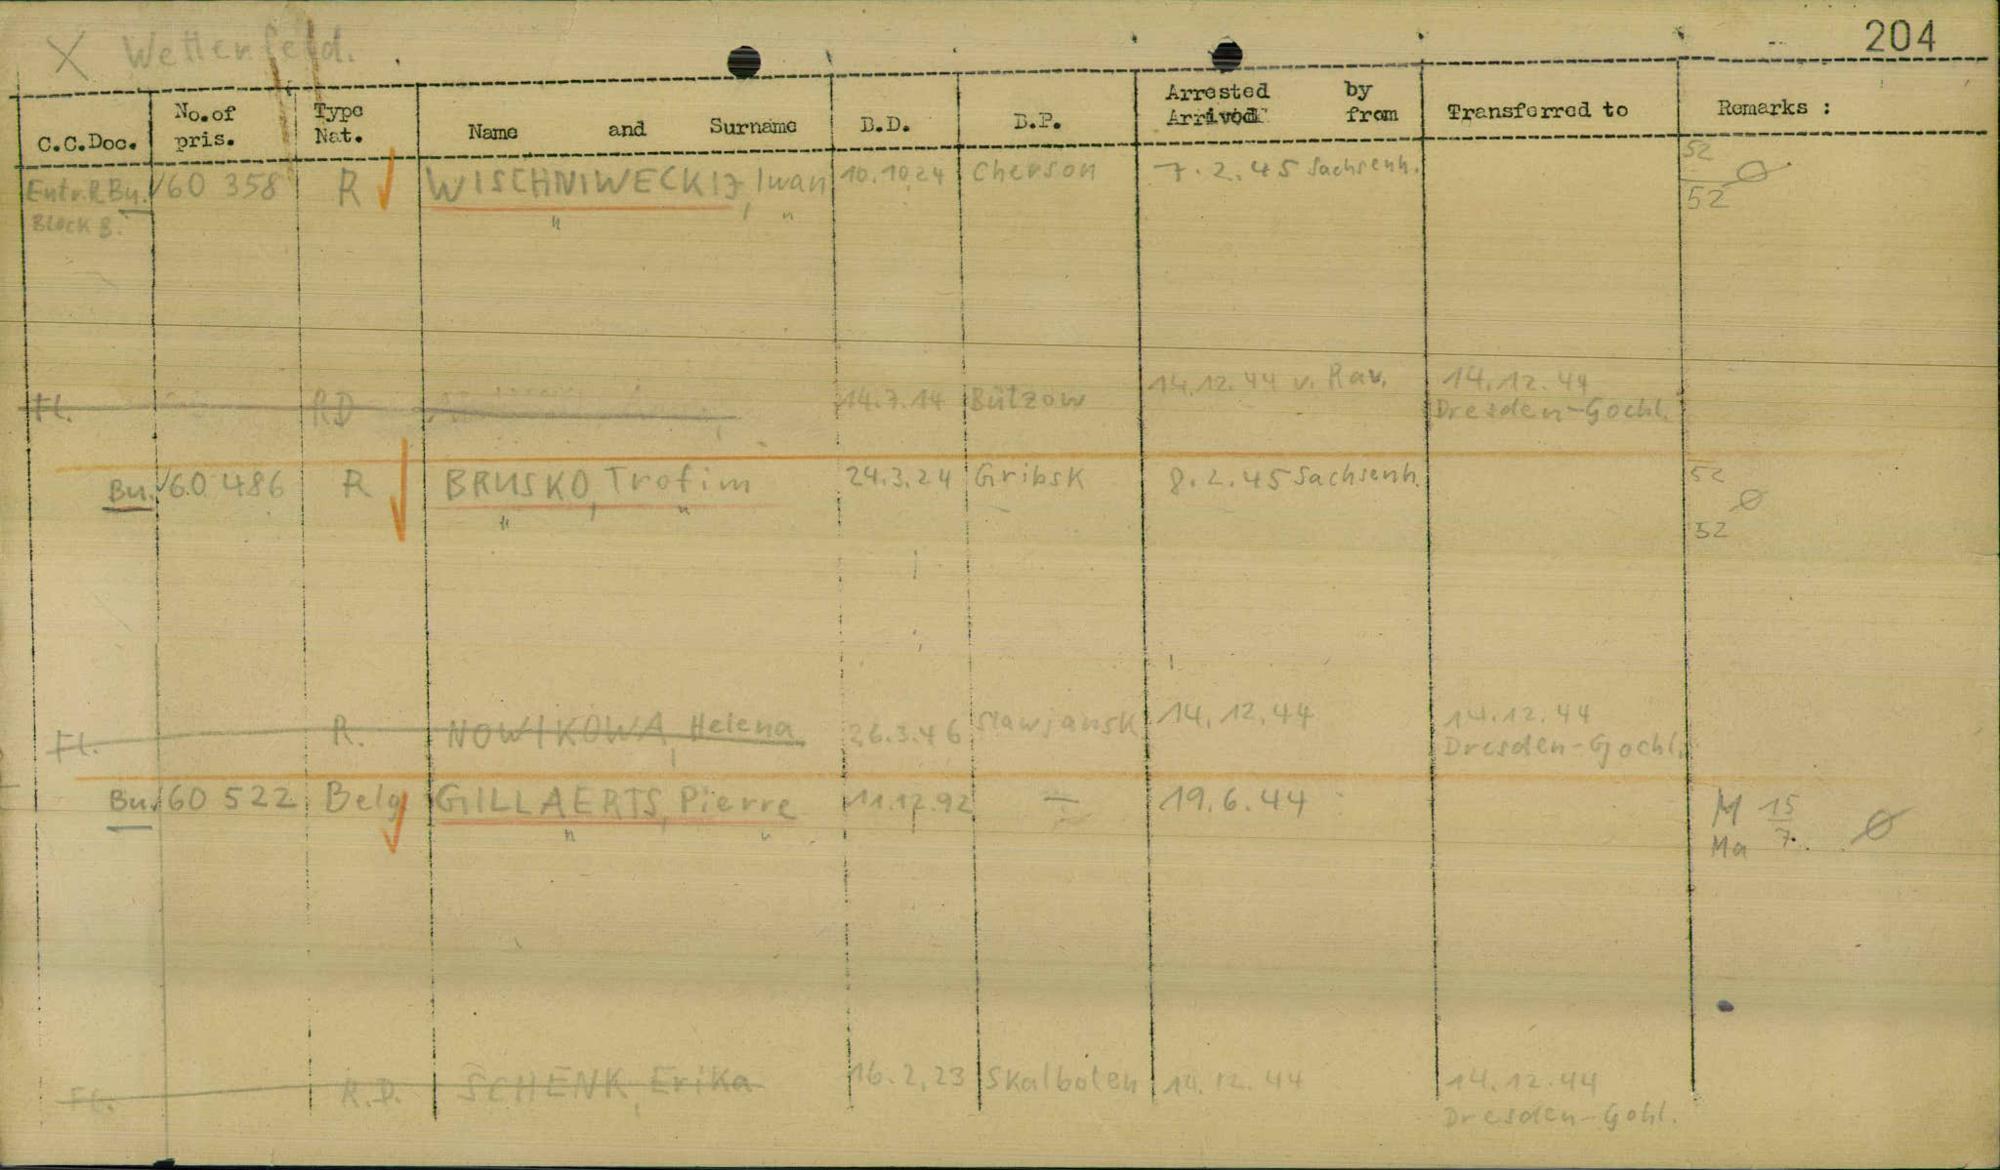 X Wetterfeld.
204
C.C.Doc. No.of pris. Type Nat. Name and Surname B.D. B.P. Arrested Arrived by from Transferred to Remarks :
Entr.R.Bu. 60 358 R WISCHNIWECKIJ, Iwan 10.10.24 Cherson 7.2.45 Sachsenh. 52
Block 8. " " 52
Fl. RD 14.7.14 Bützow 14.12.44 v. Rav. 14.12.44
Dresden-Gochl.
Bu. 60 486 R BRUSKO, Trofim 24.3.24 Gribsk 8.2.45 Sachsenh. 52
" " 52
Fl. R. NOWIKOWA, Helena 26.3.46 Slawjansk 14.12.44 14.12.44
Dresden-Gochl.
Bu. 60 522 Belg GILLAERTS, Pierre 11.12.92 — 19.6.44 M 15
" " Ma 7.
Fl. R.D. SCHENK, Erika 16.2.23 Skalboten 14.12.44 14.12.44
Dresden-Gohl.